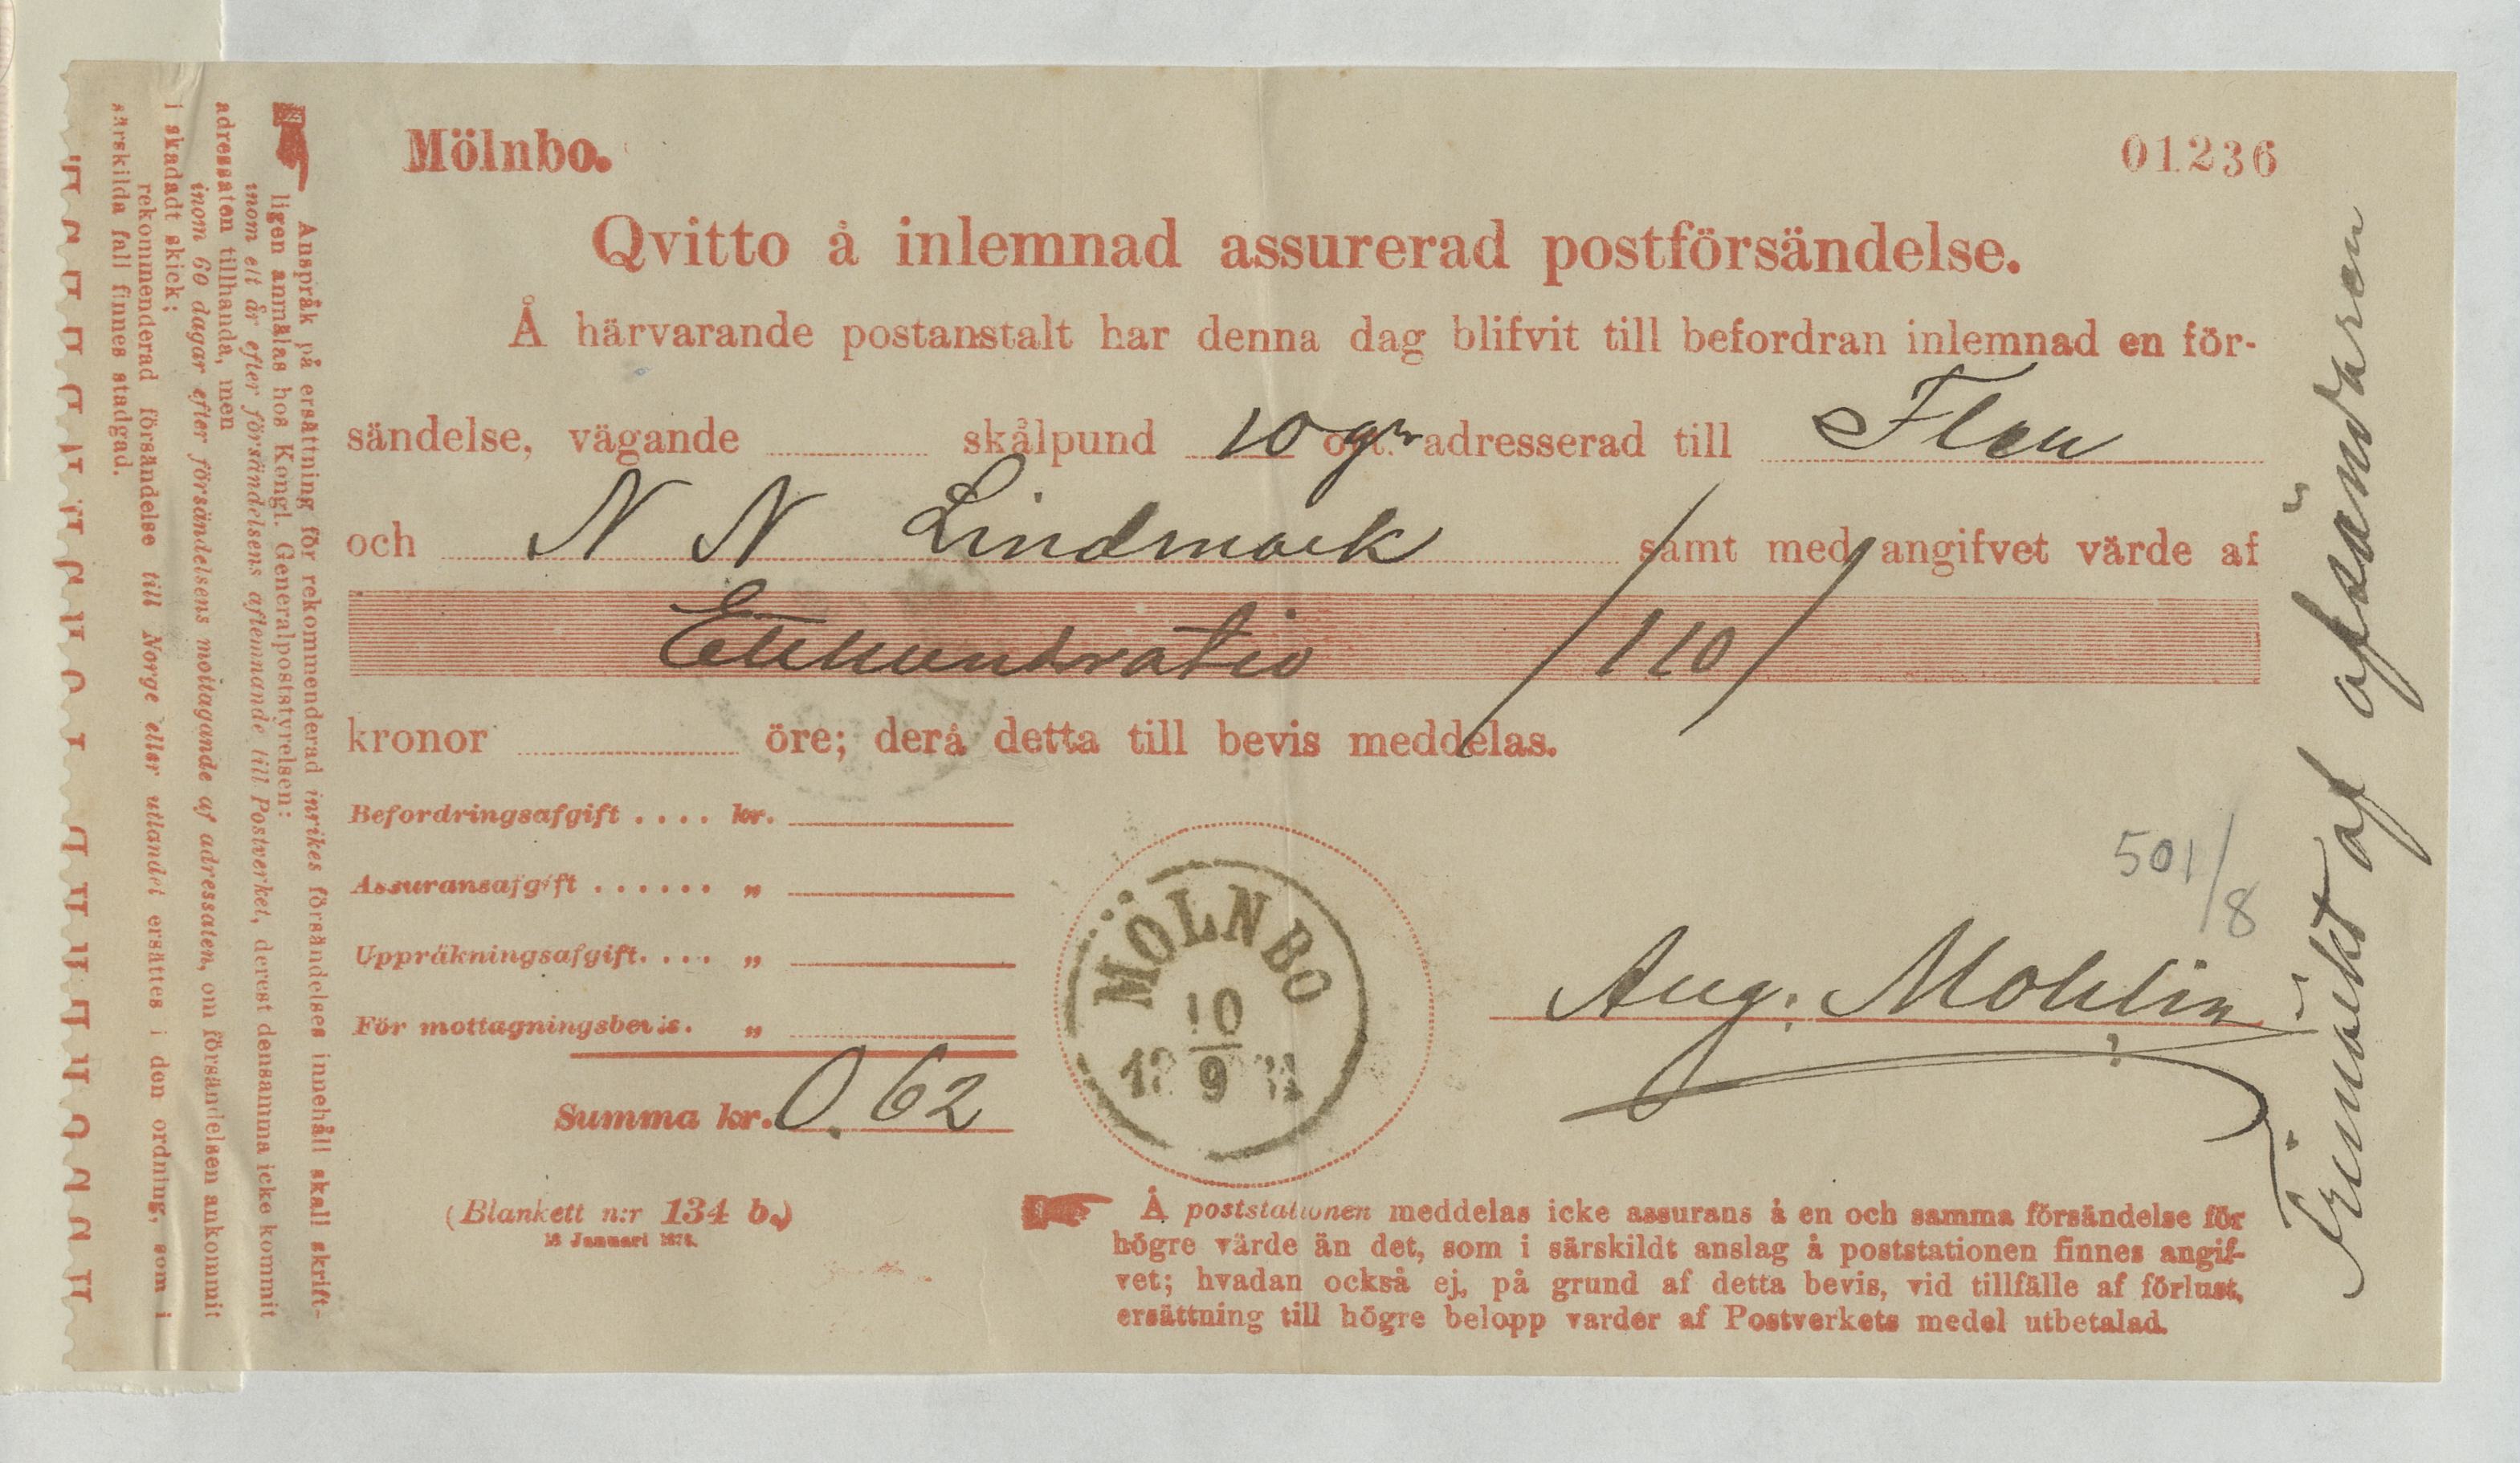 Mölnbo.
01236
Qvitto å inlemnad assurerad postförsändelse.
Å härvarande postanstalt har denna dag blifvit till befordran inlemnad en för-
sändelse, vägande skålpund 10 gr ort. adresserad till Flen
och N N Lindmark samt med angifvet värde af
Etthundratio /110/
kronor öre; derå detta till bevis meddelas.
Befordringsafgift .... kr.
Assuransafgift ...... „
Uppräkningsafgift. ... „
För mottagningsbevis. „
Summa kr. 0.62
MÖLNBO
10
9
501/8
Aug. Mohlin
(Blankett n:r 134 b.)
Å poststationen meddelas icke assurans å en och samma försändelse för
högre värde än det, som i särskildt anslag å poststationen finnes angif-
vet; hvadan också ej, på grund af detta bevis, vid tillfälle af förlust,
ersättning till högre belopp varder af Postverkets medel utbetalad.
Frimärkt af afsändaren
Anspråk på ersättning för rekommenderad inrikes försändelses innehåll skall skrift-
ligen anmälas hos Kongl. Generalpoststyrelsen:
inom ett år efter försändelsens aflemnande till Postverket, derest densamma icke kommit
adressaten tillhanda, men
inom 60 dagar efter försändelsens mottagande af adressaten, om försändelsen ankommit
i skadadt skick;
rekommenderad försändelse till Norge eller utlandet ersättes i den ordning, som i
särskilda fall finnes stadgad.